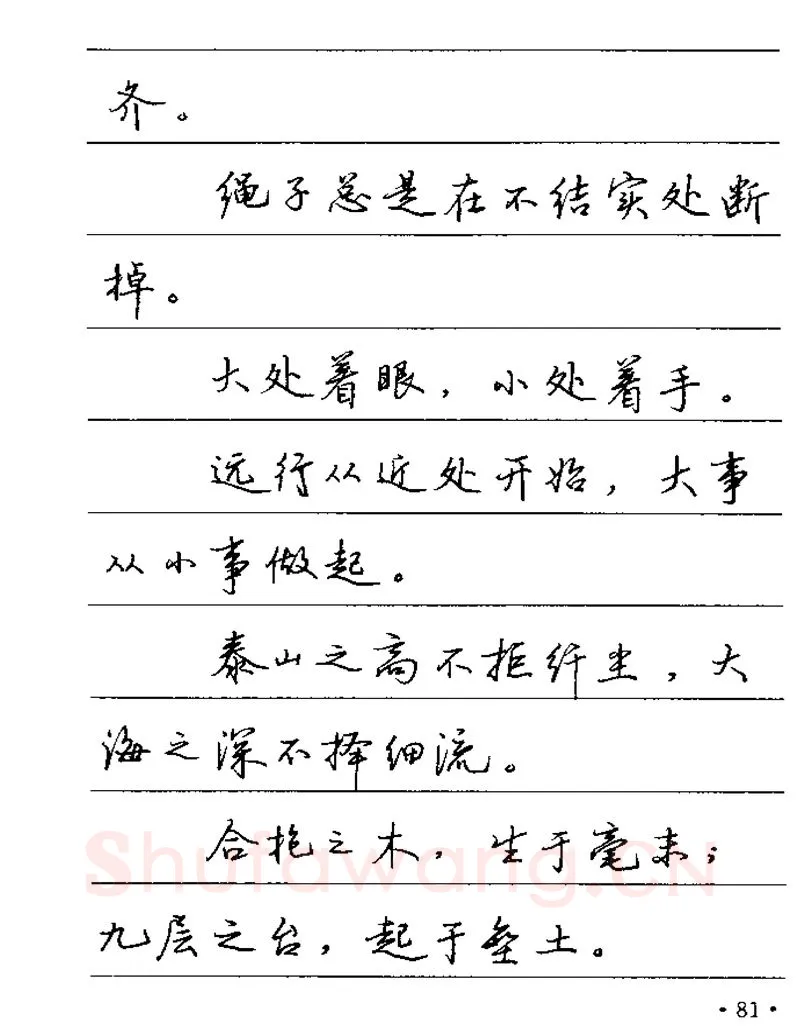 齐。
绳子总是在不结实处断
掉。
大处着眼，小处着手。
远行从近处开始，大事
从小事做起。
泰山之高不拒纤尘，大
海之深不择细流。
合抱之木，生于毫末；
Shufawang.CN
九层之台，起于垒土。
·81·